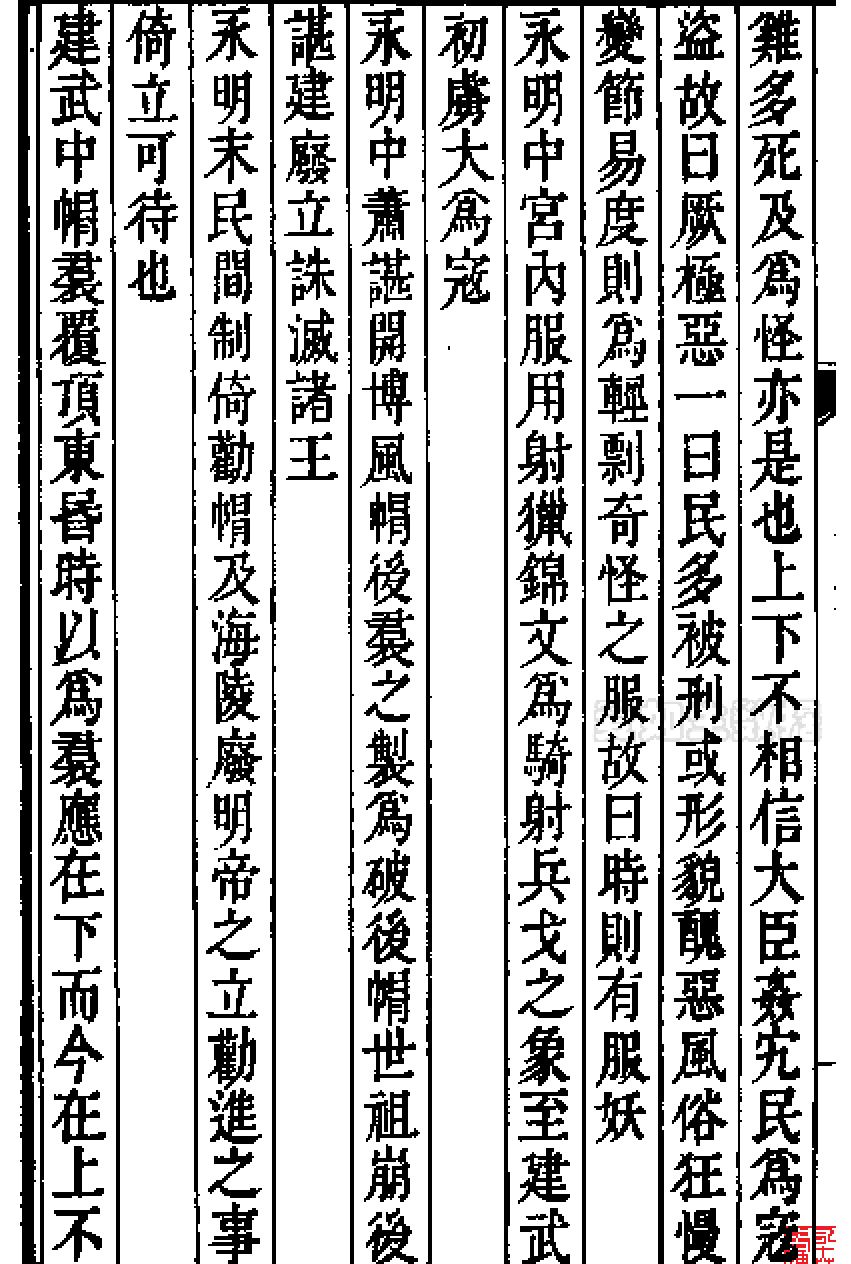 雞多死及爲怪亦是也上下不相信大臣姦宄民爲寇
盜故曰厥極惡一曰民多被刑或形貌醜惡風俗狂慢
變節易度則爲輕剽奇怪之服故曰時則有服妖
永明中宮內服用射獵錦文爲騎射兵戈之象至建武
初虜大爲寇
永明中蕭諶開博風帽後裠之製爲破後帽世祖崩後
諶建廢立誅滅諸王
永明末民間制倚勸帽及海陵廢明帝之立勸進之事
倚立可待也
建武中帽裠覆頂東昏時以爲裠應在下而今在上不